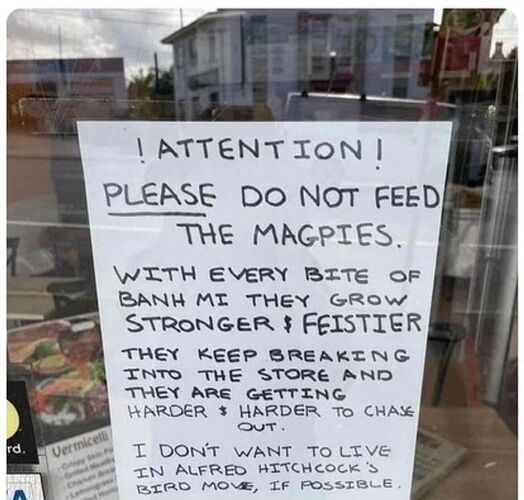 ! ATTENTION !
PLEASE DO NOT FEED
THE MAGPIES.
WITH EVERY BITE OF
BANH MI THEY GROW
STRONGER & FEISTIER
THEY KEEP BREAKING
INTO THE STORE AND
THEY ARE GETTING
HARDER & HARDER TO CHASE
OUT.
I DON'T WANT TO LIVE
IN ALFRED HITCHCOCK'S
BIRD MOVE, IF POSSIBLE.
rd.
Vermicelli